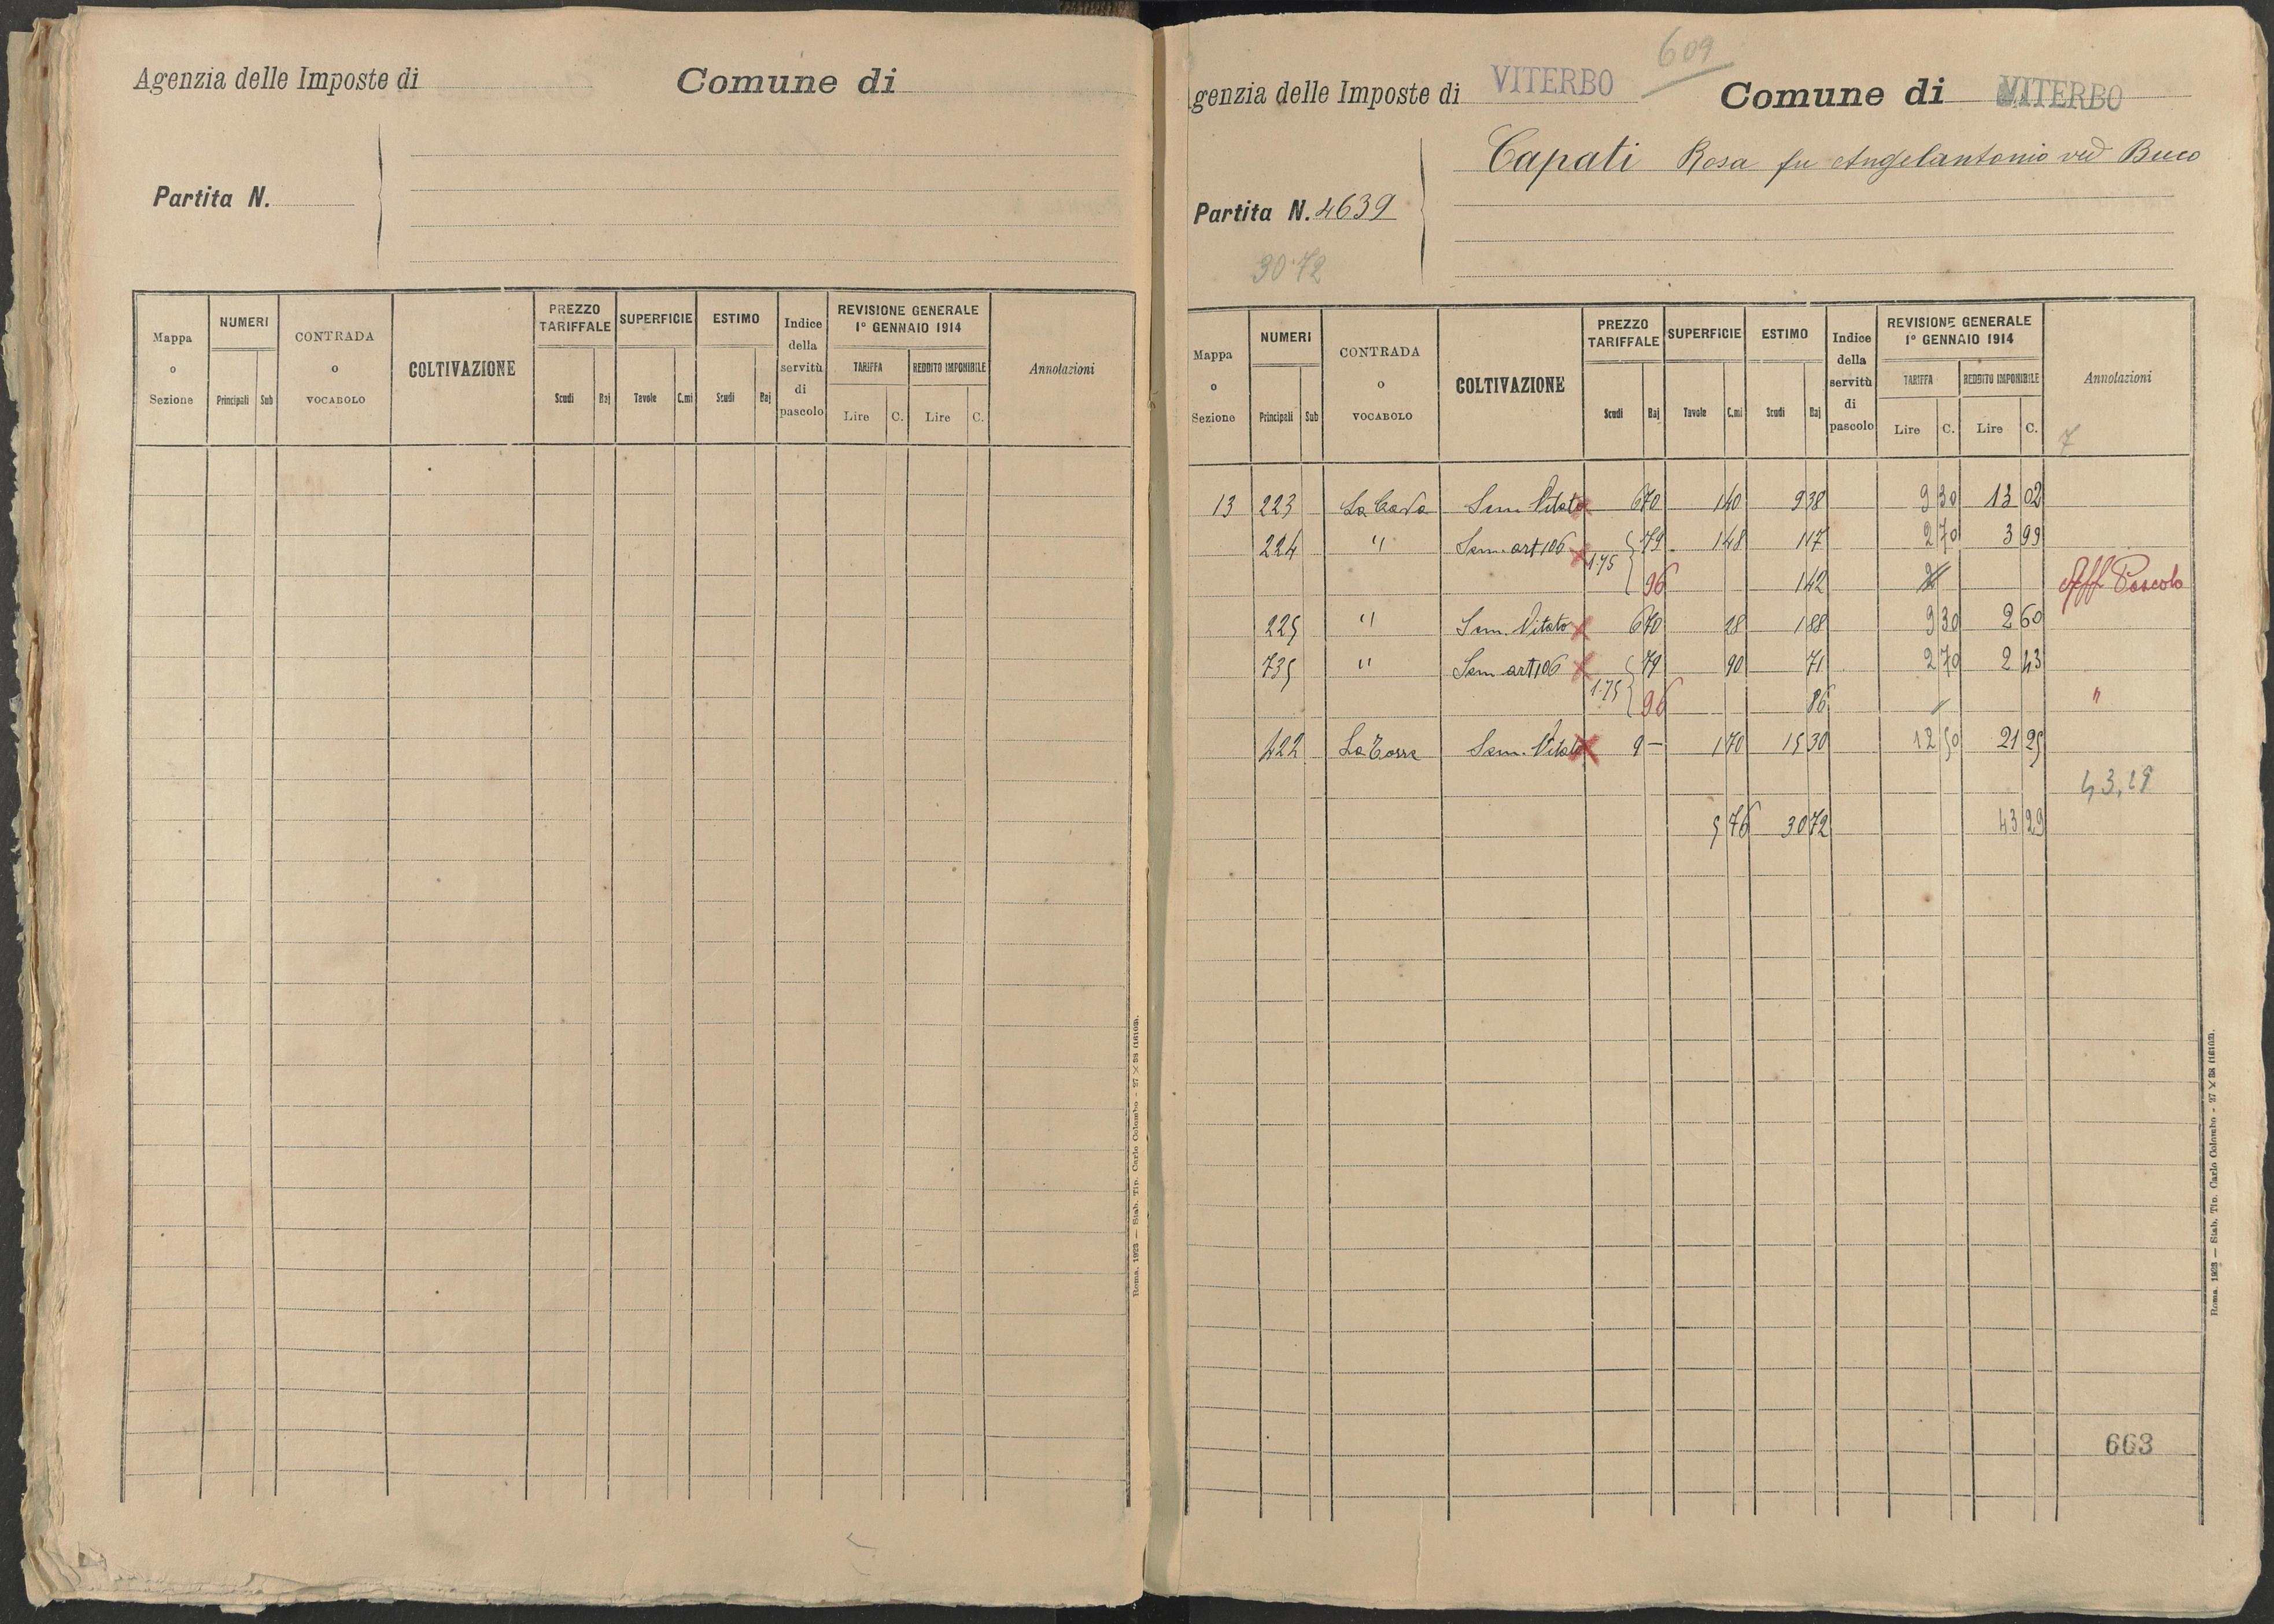 Agenzia delle Imposte di Comune di
Partita N.
Mappa o Sezione NUMERI Principali Sub CONTRADA o VOCABOLO COLTIVAZIONE PREZZO TARIFFALE Scudi Baj SUPERFICIE Tavole C.mi ESTIMO Scudi Baj Indice della servitù di pascolo REVISIONE GENERALE 1º GENNAIO 1914 TARIFFA Lire C. REDDITO IMPONIBILE Lire C. Annotazioni
Roma, 1923 — Stab. Tip. Carlo Colombo - 27 × 38 (1610).
609
genzia delle Imposte di VITERBO Comune di VITERBO
Capati Rosa fu Angelantonio ved Buco
Partita N. 4639
30.72
Mappa o Sezione NUMERI Principali Sub CONTRADA o VOCABOLO COLTIVAZIONE PREZZO TARIFFALE Scudi Baj SUPERFICIE Tavole C.mi ESTIMO Scudi Baj Indice della servitù di pascolo REVISIONE GENERALE 1º GENNAIO 1914 TARIFFA Lire C. REDDITO IMPONIBILE Lire C. Annotazioni
7
13 223 La Cava Sem. Vitato 6 70 1 40 9 38 9 30 13 02
224 " Sem. art 106 1.75 79 1 48 1 17 2 70 3 99
96 1 42 Aff. Pascolo
225 " Sem. Vitato 6 70 28 1 88 9 30 2 60
735 " Sem art 106 1.75 79 90 71 2 70 2 43
96 86 "
422 La Torre Sem. Vitato 9 — 1 70 15 30 12 50 21 25
43,29
5 76 30 72 43 29
663
Roma, 1923 — Stab. Tip. Carlo Colombo - 27 × 38 (1610).